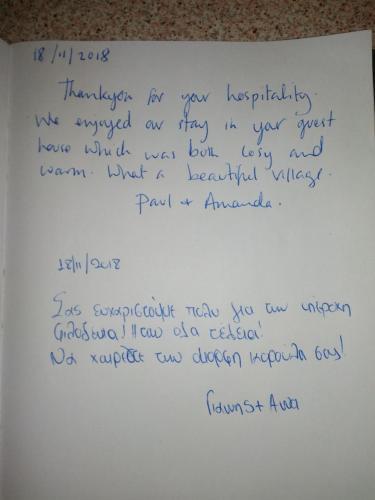 18/11/2018
Thankyou for your hospitality.
We enjoyed our stay in your guest
house which was both cosy and
warm. What a beautiful village.
Paul + Amanda.
18/11/2018
Σας ευχαριστούμε πολυ για την υπέροχη
φιλοξενια! Ηταν ολα τέλεια!
Να χαιρεστε την όμορφη κορούλα σας!
Γιαννης + Αννα